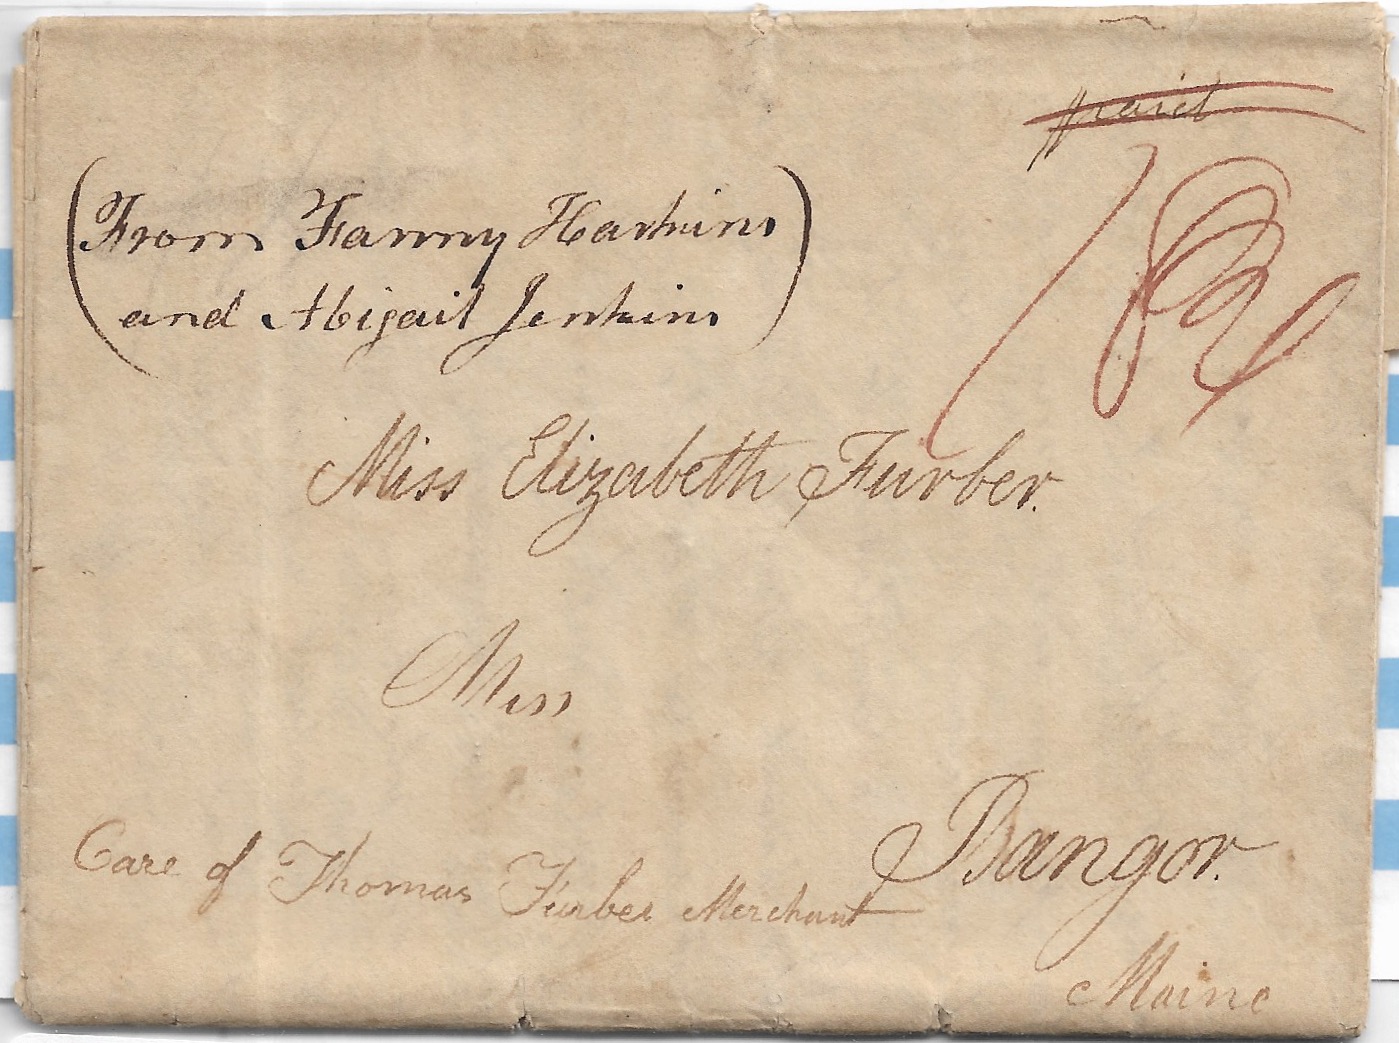 paid
(From Fanny Harkins
and Abigail Jenkins)
Miss Elizabeth Furber.
Miss
Bangor.
Care of Thomas Furber Merchant
Maine